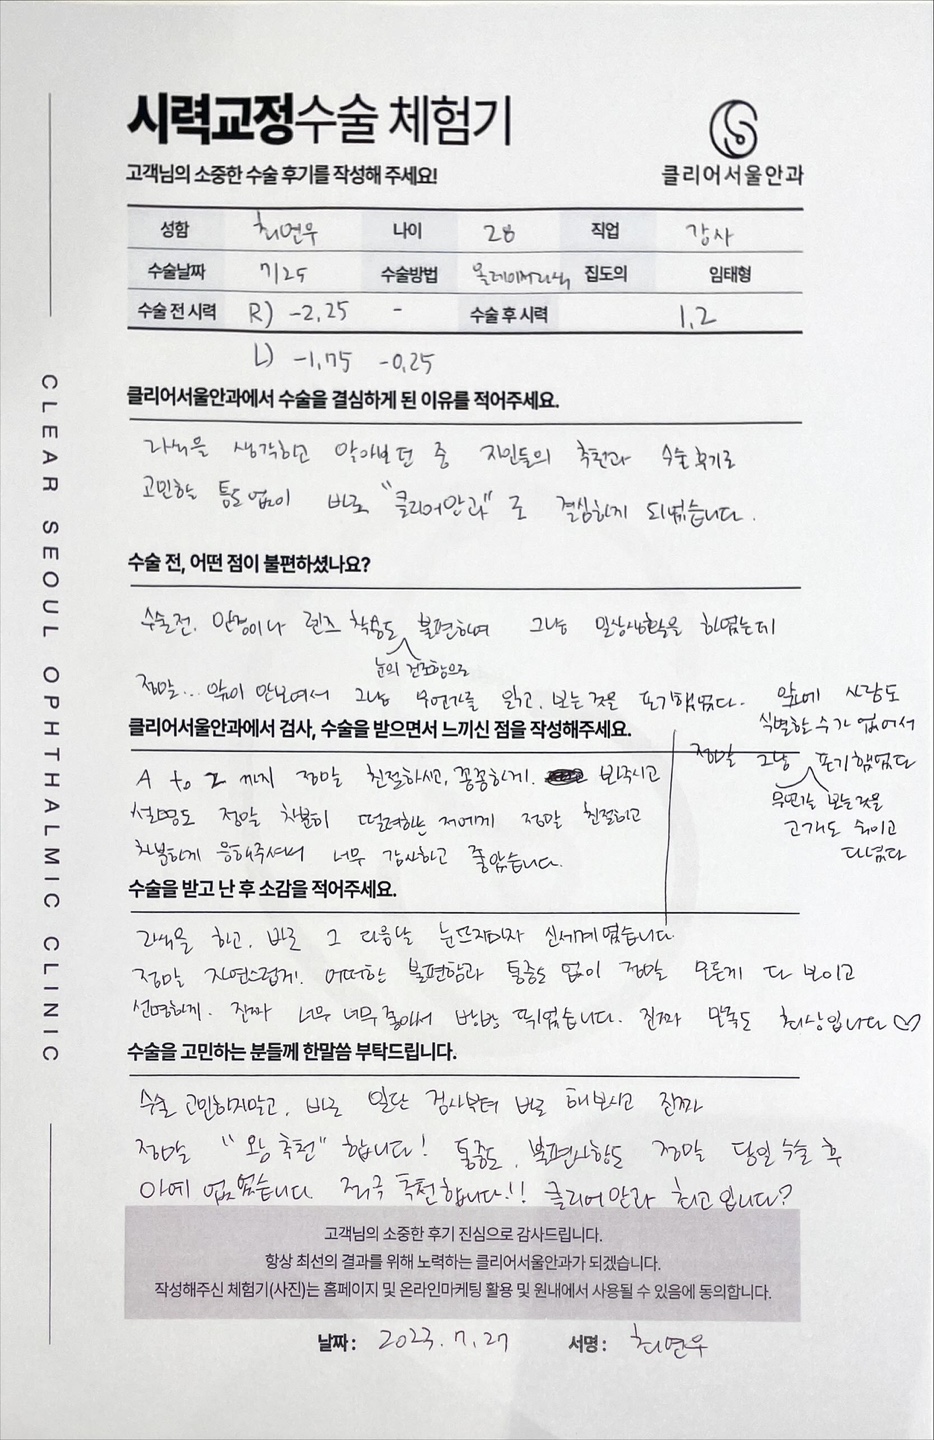 시력교정수술 체험기
고객님의 소중한 수술 후기를 작성해 주세요!
클리어서울안과
성함 최연우 나이 28 직업 강사
수술날짜 7/25 수술방법 올레이저라식 집도의 임태형
수술 전 시력 R) -2.25 - 수술 후 시력 1.2
L) -1.75 -0.25
클리어서울안과에서 수술을 결심하게 된 이유를 적어주세요.
라식을 생각하고 알아보던 중 지인들의 추천과 수술 후기로
고민할 틈도 없이 바로 "클리어안과"로 결심하게 되었습니다.
수술 전, 어떤 점이 불편하셨나요?
수술전. 안경이나 렌즈 착용도 불편하여 그냥 일상생활을 하였는데
눈의 건조함으로
정말... 앞이 안보여서 그냥 무언가를 읽고, 보는 것을 포기했었다. 앞에 사람도
식별할 수가 없어서
정말 그냥 포기했었다
무언가를 보는 것을
고개도 숙이고
다녔다
클리어서울안과에서 검사, 수술을 받으면서 느끼신 점을 작성해주세요.
A to Z 까지 정말 친절하시고, 꼼꼼하게. 봐주시고
설명도 정말 차분히 떨려하는 저에게 정말 친절하고
차분하게 응해주셔서 너무 감사하고 좋았습니다.
수술을 받고 난 후 소감을 적어주세요.
라식을 하고, 바로 그 다음날 눈뜨자마자 신세계였습니다.
정말 자연스럽게! 어떠한 불편함과 통증도 없이 정말 모든게 다 보이고
선명하게. 진짜 너무 너무 좋아서 방방 뛰었습니다. 진짜 만족도 최상입니다 ♡
수술을 고민하는 분들께 한말씀 부탁드립니다.
수술 고민하지말고, 바로 일단 검사부터 바로 해보시고 진짜
정말 "왕 추천" 합니다! 통증도, 불편사항도 정말 당일 수술 후
아예 없었습니다 적극 추천합니다!! 클리어안과 최고입니다?
고객님의 소중한 후기 진심으로 감사드립니다.
항상 최선의 결과를 위해 노력하는 클리어서울안과가 되겠습니다.
작성해주신 체험기(사진)는 홈페이지 및 온라인마케팅 활용 및 원내에서 사용될 수 있음에 동의합니다.
날짜 : 2023. 7. 27 서명 : 최연우
CLEAR SEOUL OPHTHALMIC CLINIC